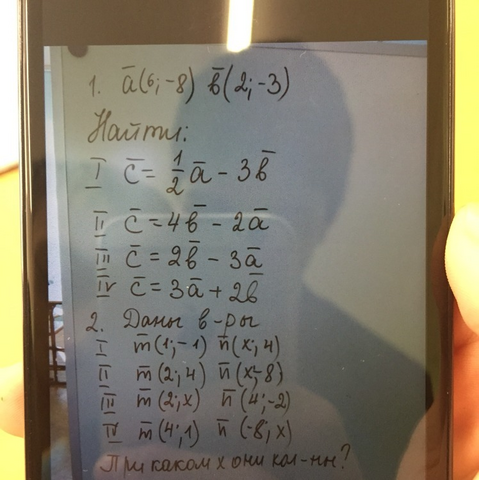 1. a̅(6;-8) b̅(2;-3)
Найти:
I c̅ = 1/2 a̅ - 3b̅
II c̅ = 4b̅ - 2a̅
III c̅ = 2b̅ - 3a̅
IV c̅ = 3a̅ + 2b̅
2. Даны в-ры
I m̅(1;-1) n̅(x;4)
II m̅(2;4) n̅(x;-8)
III m̅(2;x) n̅(4;-2)
IV m̅(4;1) n̅(-8;x)
При каком x они кол-ны?